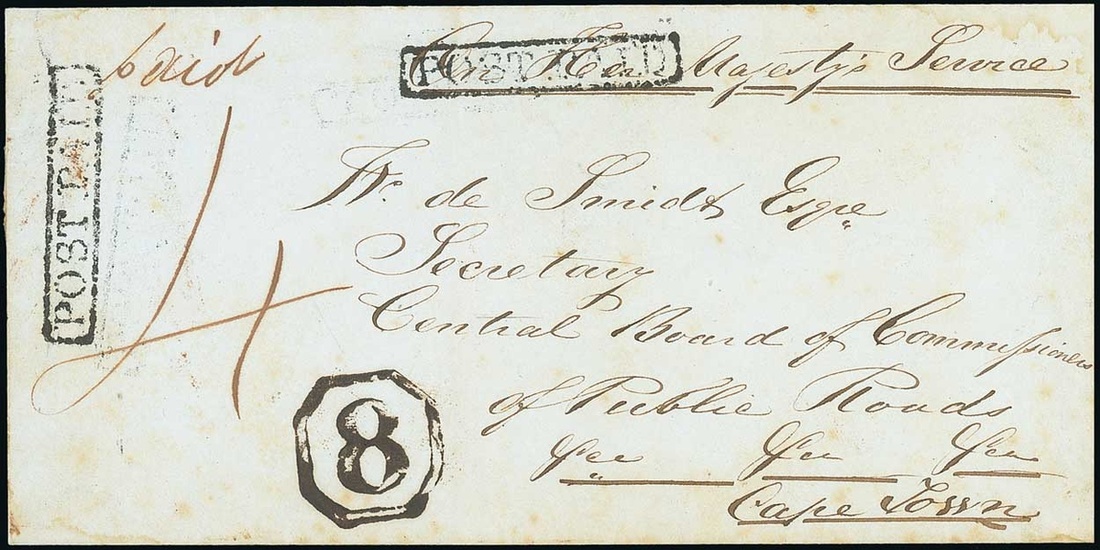 paid
On Her Majesty's Service
POST PAID
POST PAID
4
Wr. de Smidt Esqre
Secretary
Central Board of Commissioners
of Public Roads
&c &c &c
Cape Town
8